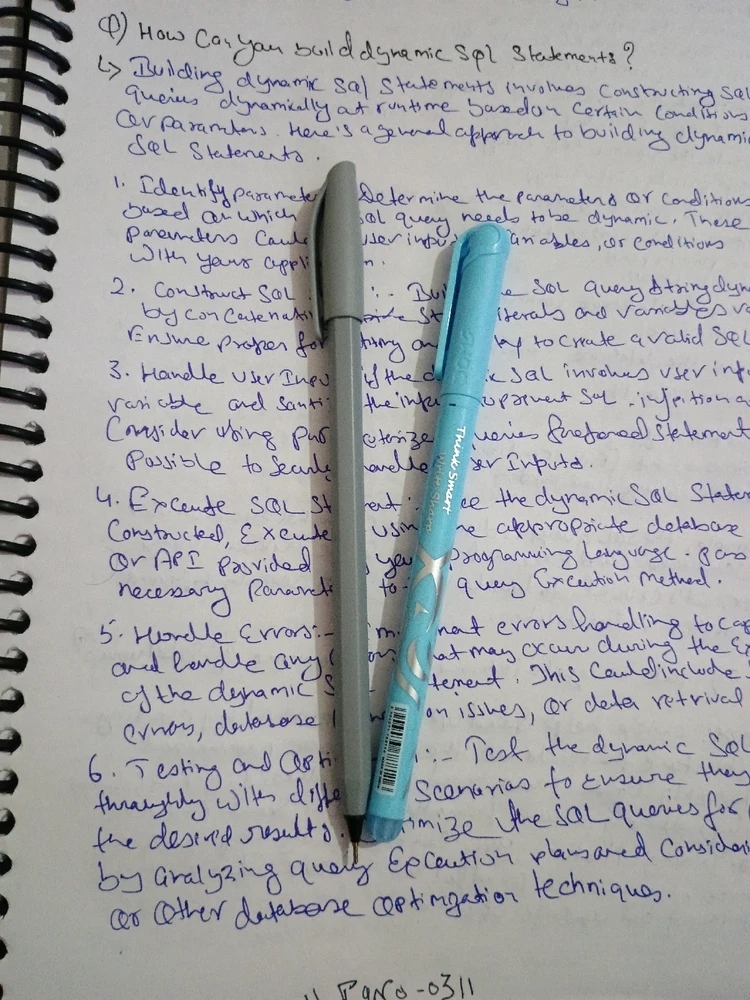 Q) How Can you build dynamic Sql Statements?
↳ Building dynamic Sql Statements involves Constructing SQL
queries dynamically at runtime based on Certain Conditions
Or parameters. Here's a general approach to building dynamic
SQL Statements.
1. Identify parameter Determine the parameters or Conditions
based on which SQL query needs to be dynamic. These
parameters Could user input variables, or conditions
With your appli n.
2. Construct SQL :- Bui e SQL query String dyn
by Concatenati String literals and variables
Ensure proper for tting an to create a valid SQL
3. Handle User Inpu if the d ic SQL involves user inp
variable and Santi the input to prevent Sql injection a
Consider using par eterize queries prefared Statement
possible to Securly handle ser Inputs.
4. Excute SQL St ent: ce the dynamic SQL Statem
Constructed, Excute usin e appropriate database
Or API provided your programming language. pass
necessary Paramet to query Excution method.
5. Handle Errors:- Im ent errors handling to cap
and handle any rors that may occur during the Ex
of the dynamic S tement. This Could include
errors, database on issues, or data retrival
6. Testing and Opti :- Test the dynamic SQL
throughly With diffe Scenarios to Ensure they
the desired results. timize the SQL queries for
by analyzing query Excution plans and Consider
or Other database Optimization techniques.
Think Smart
Write Sharp
11 PaNo-0311